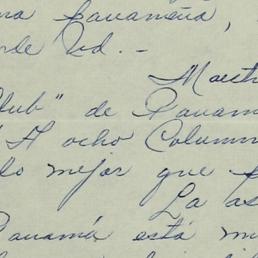 na panameña,
de Ud. -
Maest
Club" de Panam
"A ocho Column
lo mejor que
La as
Panamá está m